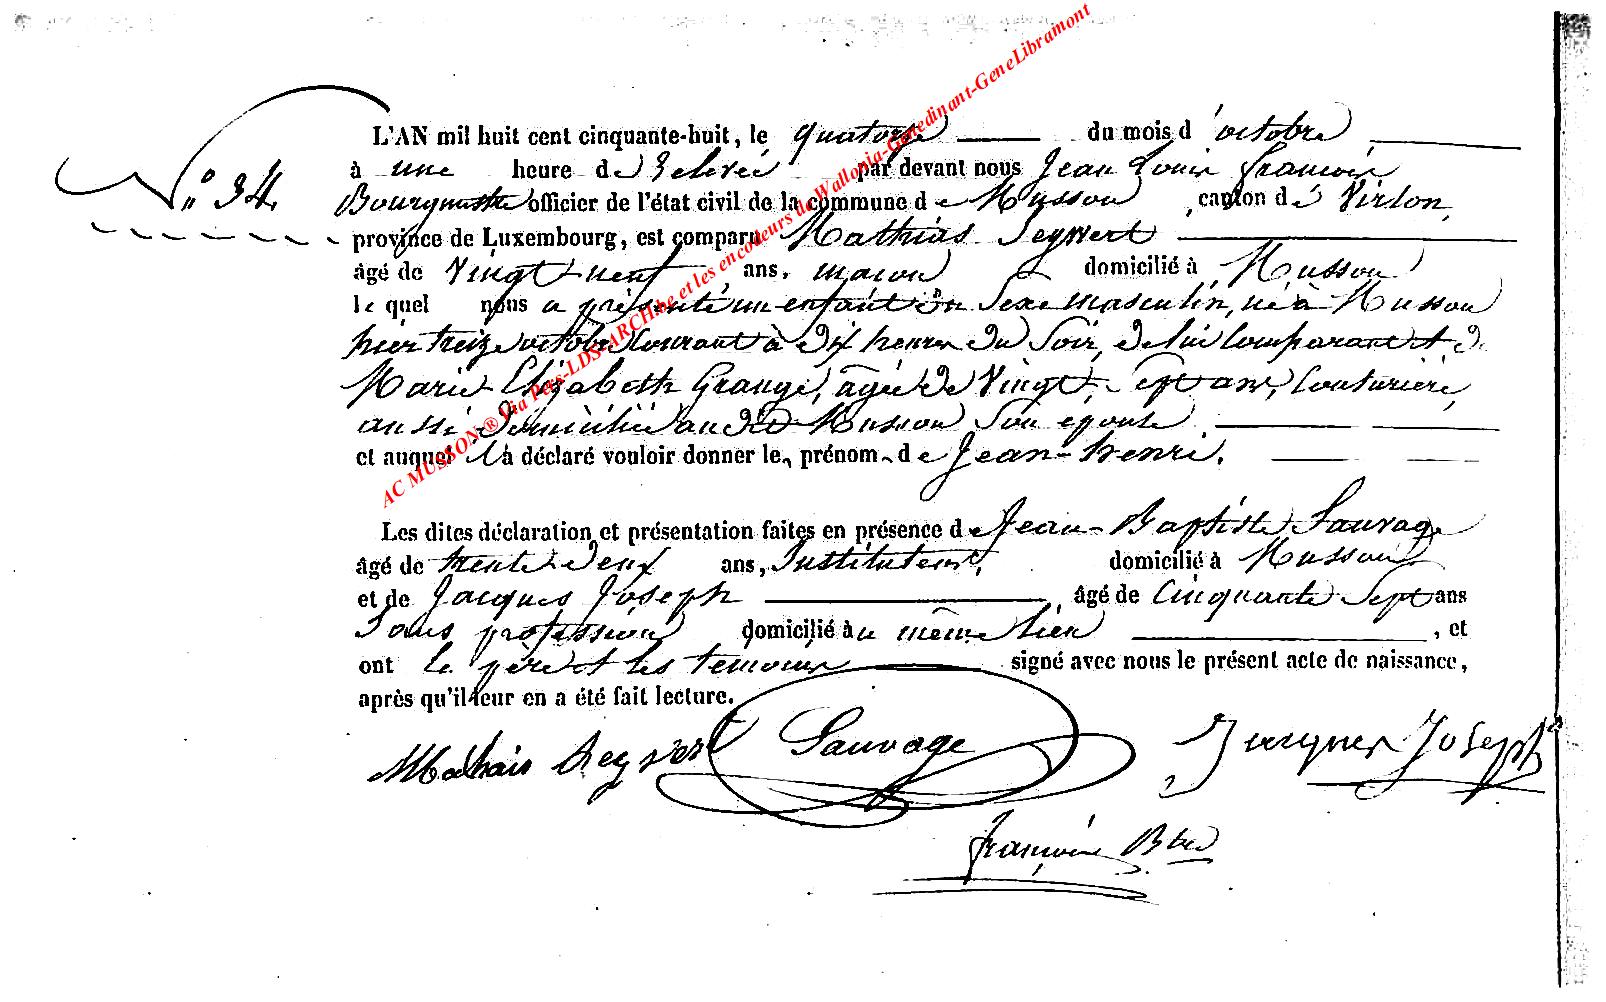 L'AN mil huit cent cinquante-huit, le quatorze du mois d'octobre
N° 34. à une heure de relevée par devant nous Jean Louis François
Bourgmestre officier de l'état civil de la commune de Musson, canton de Virton,
province de Luxembourg, est comparu Mathias Seywert
âgé de Vingt neuf ans, maçon domicilié à Musson
le quel nous a présenté un enfant du Sexe masculin, né à Musson
hier treize octobre Courant à dix heures du Soir, de lui Comparant et de
Marie Elizabeth Grange, âgée de Vingt Sept ans, Couturière,
aussi domiciliée au dit Musson Son épouse
et auquel il a déclaré vouloir donner les prénoms de Jean-henri.
Les dites déclaration et présentation faites en présence de Jean-Baptiste Sauvage
âgé de trente deux ans, Instituteur, domicilié à Musson
et de Jacques Joseph âgé de Cinquante Sept ans
Sans profession domicilié au même lieu, et
ont le père et les témoins signé avec nous le présent acte de naissance,
après qu'il leur en a été fait lecture.
Sauvage Jacques Joseph
François Btre
AC MUSSON ® Via Pers-LDS-ARCH.be et les encodeurs de Wallonia-Genedinant-GeneLibramont